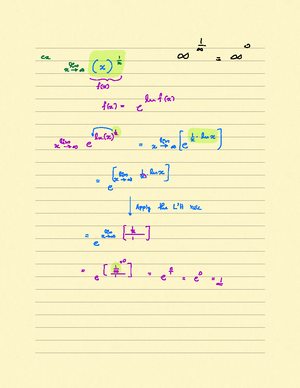 ex lim x→∞ (x)^(1/x) ∞^(1/∞) = ∞^0
f(x)
f(x) = e^(ln f(x))
lim x→∞ e^(ln(x)^(1/x)) = lim x→∞ [e^(1/x · ln x)]
= e^[lim x→∞ 1/x ln x]
Apply the L'H rule
= e^(lim x→∞ [(1/x)/1])